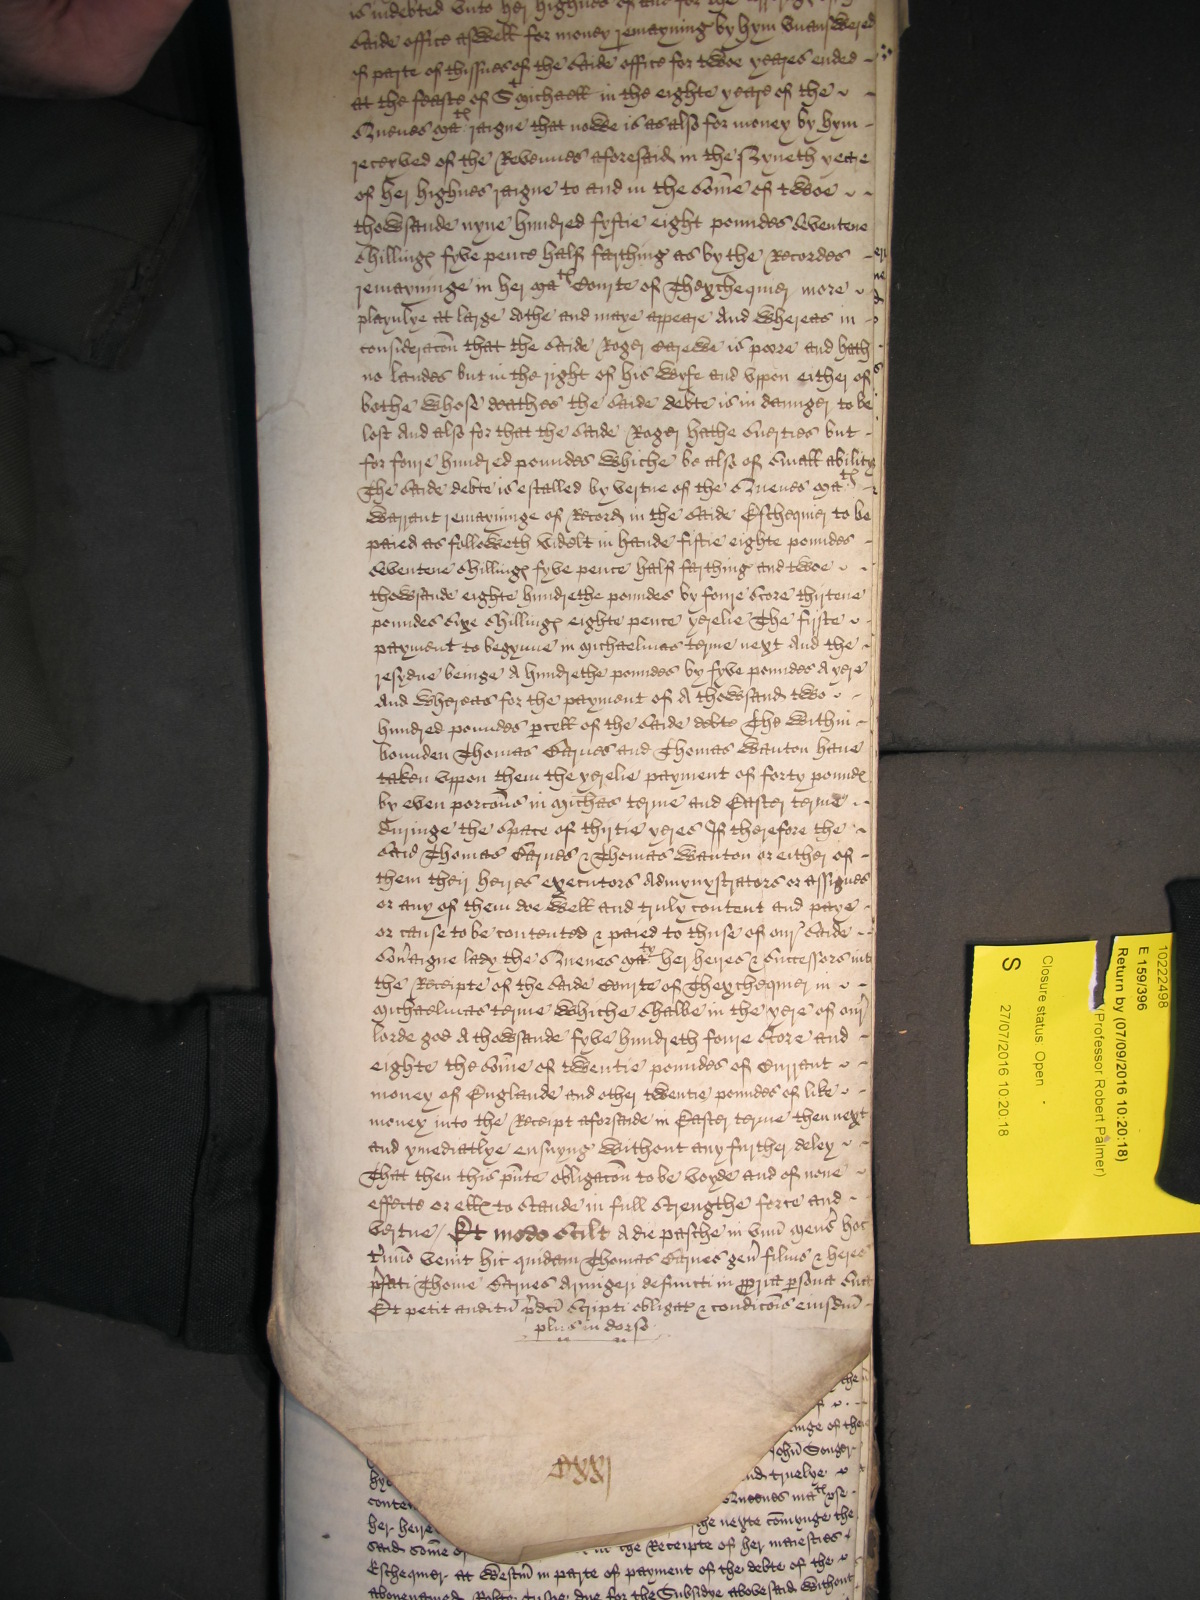 is indebted unto her highnes of and for the
saide office aswell for money remayning by hym unanswered
of parte of thissues of the saide office for twoe yeares ended
at the feaste of St Michaell in the eighte yeare of the
Quenes Matis raigne that nowe is as also for money by hym
receyved of the Revenues aforesaid in the Nyneth yeare
of her highnes raigne to and in the some of twoe
thowsande nyne hundred fyftie eight poundes seventene
shillinges fyve pence half farthing as by the Recordes
remayninge in her Mats Courte of Thexchequier more
playnlye at large dothe and maye appeare And whereas in
consideracon that the saide Roger Carewe is poore and hath
no landes but in the right of his wyfe and uppon either of
bothe whose deathes the saide debte is in daunger to be
lost And also for that the saide Roger hathe suerties but
for foure hundred poundes whiche be also of small ability
The saide debte is estalled by vertue of the Quenes Mats
warrant remayninge of Record in the saide Eschequier to be
paied as followeth videlt in hande fiftie eighte poundes
seventene shillinges fyve pence half farthing and twoe
thowsande eighte hundrethe poundes by foure score thirtene
poundes sixe shillinges eighte pence yerelie The firste
payment to begynne in Michaelmas terme next And the
resydue beinge A hundrethe poundes by fyve poundes A yere
And whereas for the payment of A thowsand two
hundred poundes pcell of the saide debte The within
bounden Thomas Carnes and Thomas Wanton have
taken uppon them the yerelie payment of forty poundes
by even porcons in Michas terme and Easter terme
duringe the space of thirtie yeres If therefore the
said Thomas Carnes & Thomas Wanton or either of
them their heires executors Admynystrators or assignes
or any of them doe well and truly content and paye
or cause to be contented & paied to thuse of our saide
Soveraigne lady the Quenes Maty her heires & Successors into
the Receipte of the saide Courte of Thexchequier in
Michaelmas terme whiche shalbe in the yere of our
lorde god A thowsande fyve hundreth foure score and
eighte the some of twentie poundes of Currant
money of Englande and other twentie poundes of like
money into the Receipt aforsaide in Easter terme then next
and ymediatlye ensuyng without any further deley
That then this pnte obligacon to be voyde and of none
effecte or elles to stande in full strengthe force and
vertue / Et modo scilt A die pasche in unu mens hoc
tmio venit hic quidam Thomas Carnes gen filius & heres
pfati Thome Carnes Armigeri defuncti in ppria psona sua
Et petit auditu pdci scripti obligat & condicois eiusdm
plus in dorso
CXXI
10222498
E 159/396
Return by (07/09/2016 10:20:18)
(Professor Robert Palmer)
Closure status: Open
S 27/07/2016 10:20:18
the
inge of the
John Songer
and twelve
conten Quenes mats use
her heire the nexte comynge the
said some of in the Receipte of her maiesties
Eschequier at Westm in parte of payment of the debte of the
abovenamed due for the Subsidye abovesaid without